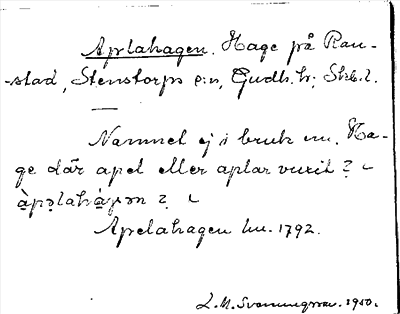 Aplahagen. Hage på Ran-
stad, Stenstorps sn, Gudh. hr; Skb. l.
—
Namnet ej i bruk nu. Ha-
ge där apel eller aplar vuxit?
àpəlahàgən
Apelahagen hu. 1792.
L. M. Svenungsson. 1910.